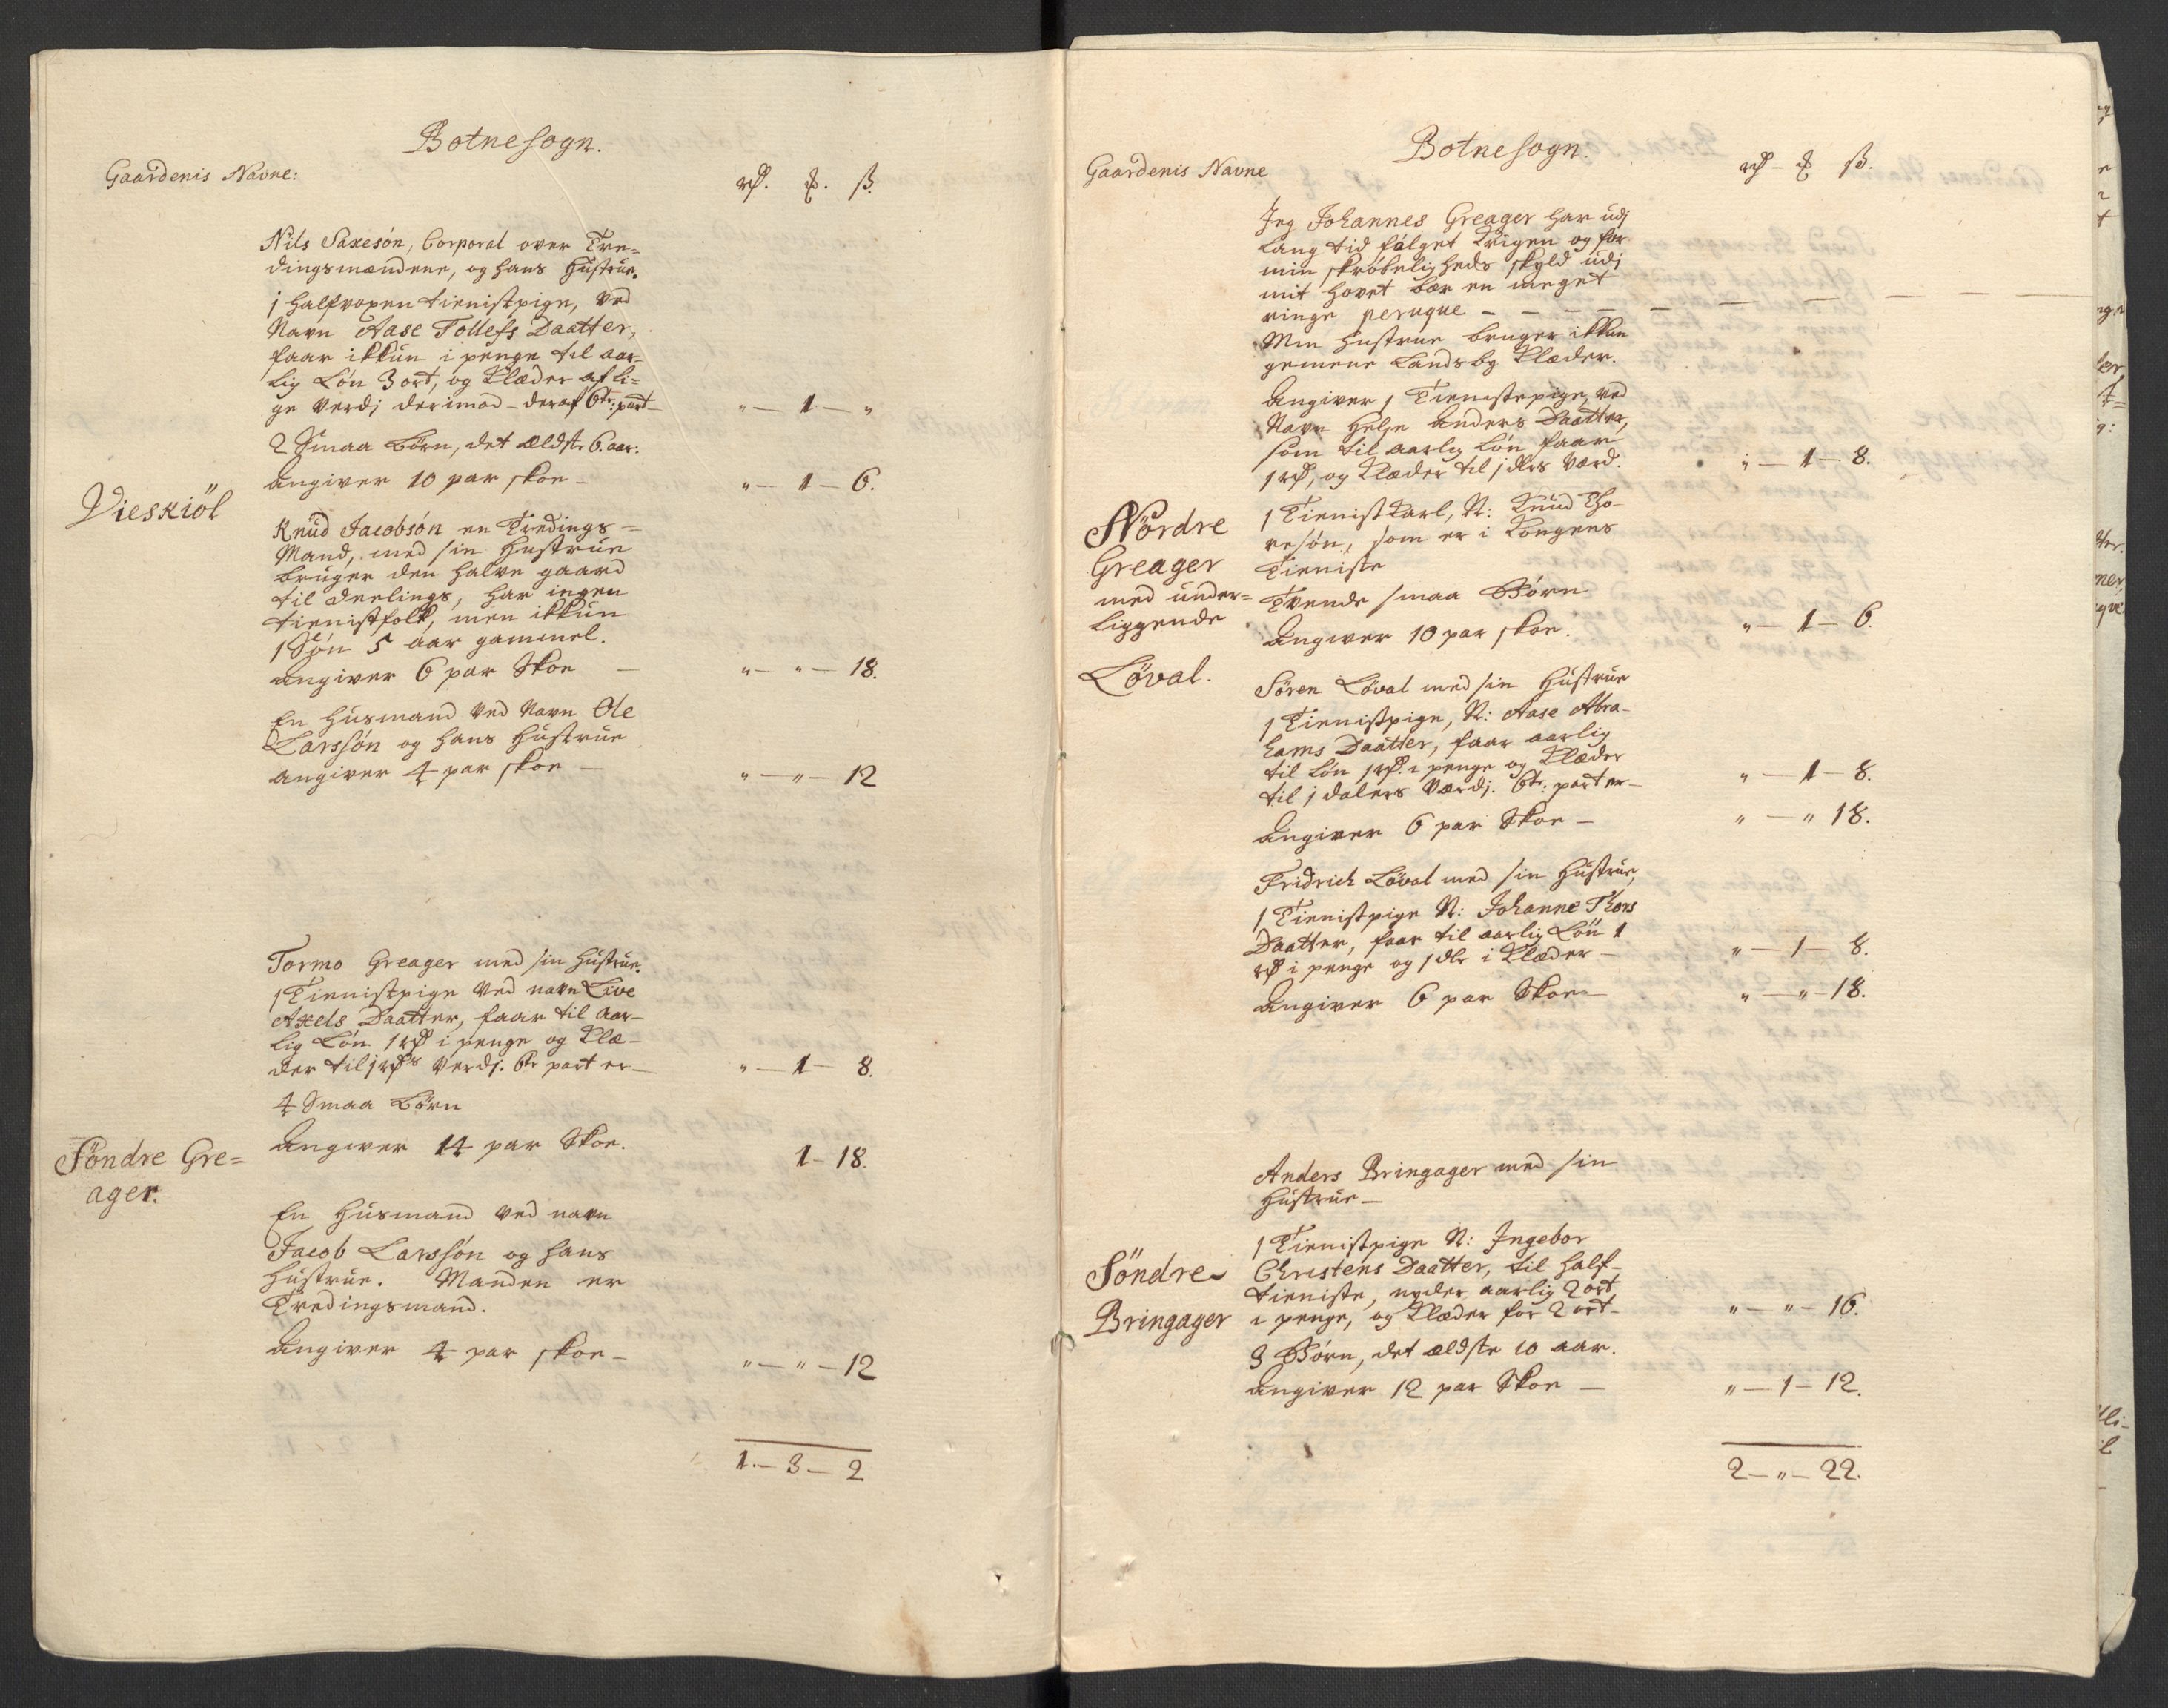 Botnesogn.
Gaardenis Navne:
rd. ƒ. ß.
Nils Saxesön, Corporal over Tre=
dingsmændene, og hans Hustrue.
1 halfvoxen tienistpige, ved
Navn Aase Tollefs Daatter,
faar ikkun i penge til aar-
lig Lön 3 ort, og Klæder af li=
ge Verdj derimod - deraf 6te: part — " — 1 — "
2 Smaa Börn, det eldste 6. aar.
angiver 10 par skoe — " — 1 — 6.
Vieskiöl
Knud Jacobsön en Tredings=
Mand, med sin Hustrue
bruger den halve gaard
til deelings, har ingen
tienistfolk, men ikkun
1 Sön 5 aar gammel.
angiver 6 par Skoe — " — " — 18.
En Husmand ved Navn Ole
Larssön og hans Hustrue
angiver 4 par skoe — " — " — 12
Tormo Greager med sin Hustrue.
1 Tienistpige ved navn Live
Axels Daatter, faar til aar-
lig Lön 1 rd i penge og Klæ-
der til 1 rds Verdj. 6te part er — " — 1 — 8.
4 Smaa Börn
Angiver 14 par Skoe. 1 - 18.
Söndre Gre=
ager.
En Husmand ved navn
Jacob Larssön og hans
Hustrue. Manden er
Tredingsmand.
Angiver 4 par skoe — " — " — 12
1. — 3 — 2
Botnesogn.
Gaardenis Navne
rd — ƒ ß.
Jeg Johannes Greager har udj
lang tid fölget Krigen og for
min skröbeligheds skyld udj
mit hovet bær en meget
ringe peruque — — — — — — — —
Min Hustrue bruger ikkun
gemene Landsby Klæder.
Angiver 1 Tienistepige, ved
Navn Helje Anders Daatter,
som til aarlig Lön faar
1 rd, og Klæder til 1 dlrs Værd. " — 1 — 8.
Nördre
Greager
med under=
liggende
Löval.
1 Tienistkarl, N: Knud Tho-
resön, som er i Kongens
Tieniste
Tvende smaa Börn
Angiver 10 par skoe. " — 1 — 6.
Sören Löval med sin Hustrue
1 Tienistpige, N: Aase Abra-
hams Daatter, faar aarlig
til Lön 1 rd. i penge og Klæder
til 1 dalers Værdj. 6te: part er — " — 1 — 8.
Angiver 6 par Skoe — " — " 18.
Fridrich Löval med sin Hustrue,
1 Tienistpige N: Johanne Thors
Daatter, faar til aarlig Lön 1
rd i penge og 1 dlr i Klæder — " — 1 — 8.
Angiver 6 par Skoe — " — " — 18.
Anders Bringager med sin
Hustrue —
1 Tienistpige N: Ingebor
Christens Daatter, til half-
tieniste, nyder aarlig 2 ort
i penge, og Klæder for 2 ort — " — " — 16.
Söndre
Bringager
3 Börn, det ældste 10 aar.
Angiver 12 par Skoe — " — 1 — 12.
2 — " — 22.